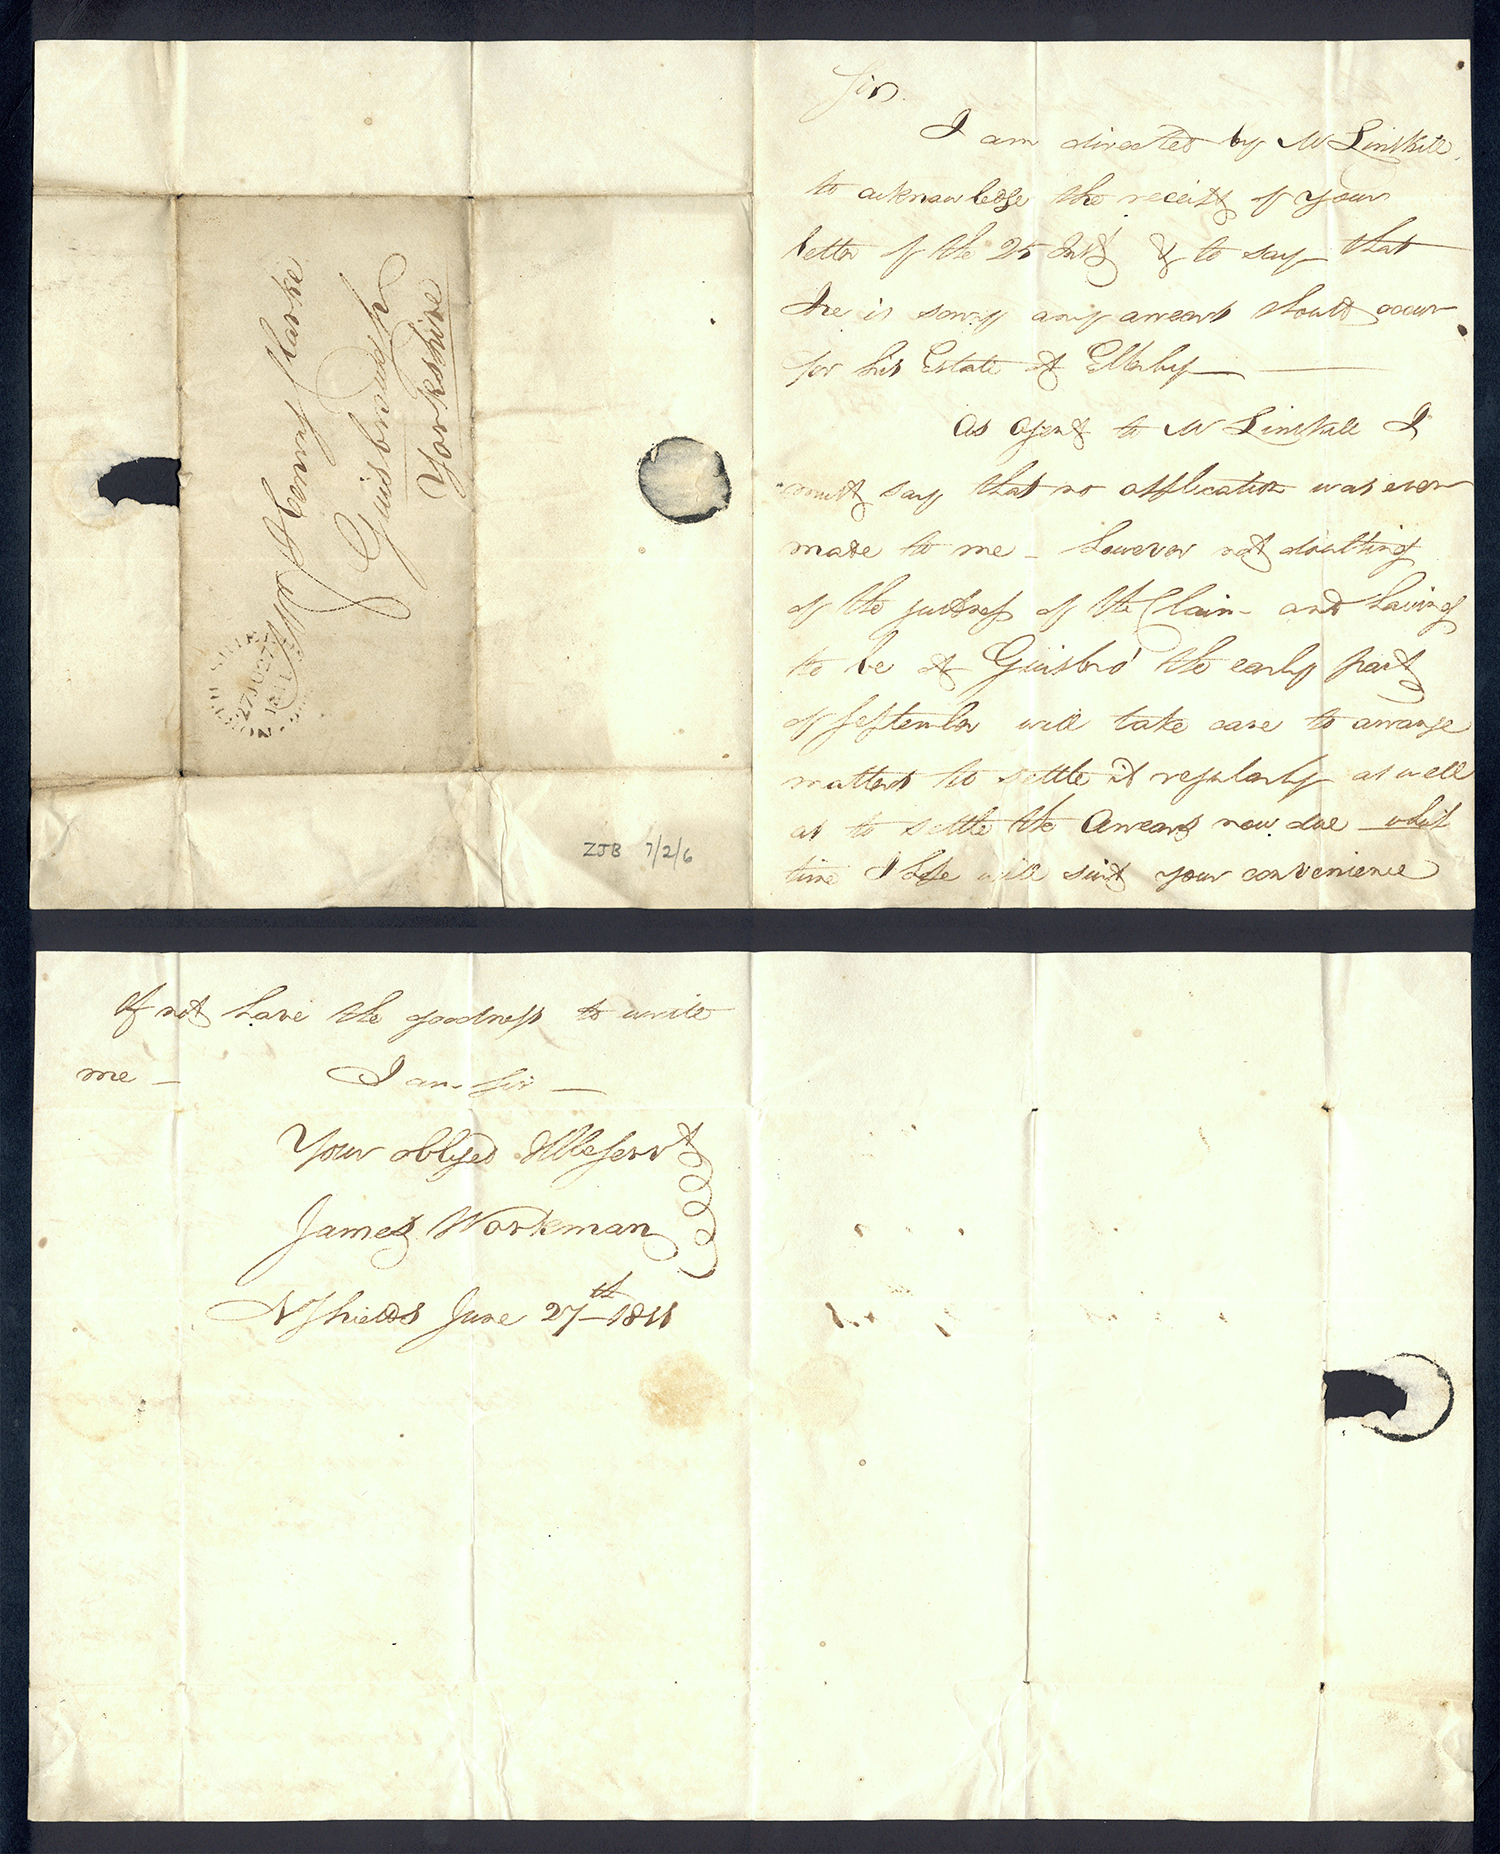 Mr Henry Clarke
Guisbrough
Yorkshire
27 JU 27
1811
ZJB 7/2/6
Sir.
I am directed by Mr Linskill,
to acknowledge the receipt of your
letter of the 25 Inst & to say that
he is sorry any arrears should occur
for his Estate at Ellerby —
As Agent to Mr Linskill I
must say that no application was ever
made to me – however not doubting
of the justness of the Claim – and having
to be at Guisbro' the early part
of September will take care to arrange
matters to settle it regularly as well
as to settle the Arrears now due – which
time I hope will suit your convenience
If not have the goodness to write
me – I am Sir –
Your obliged Hble Servt
James Workman
N Shields June 27th 1811